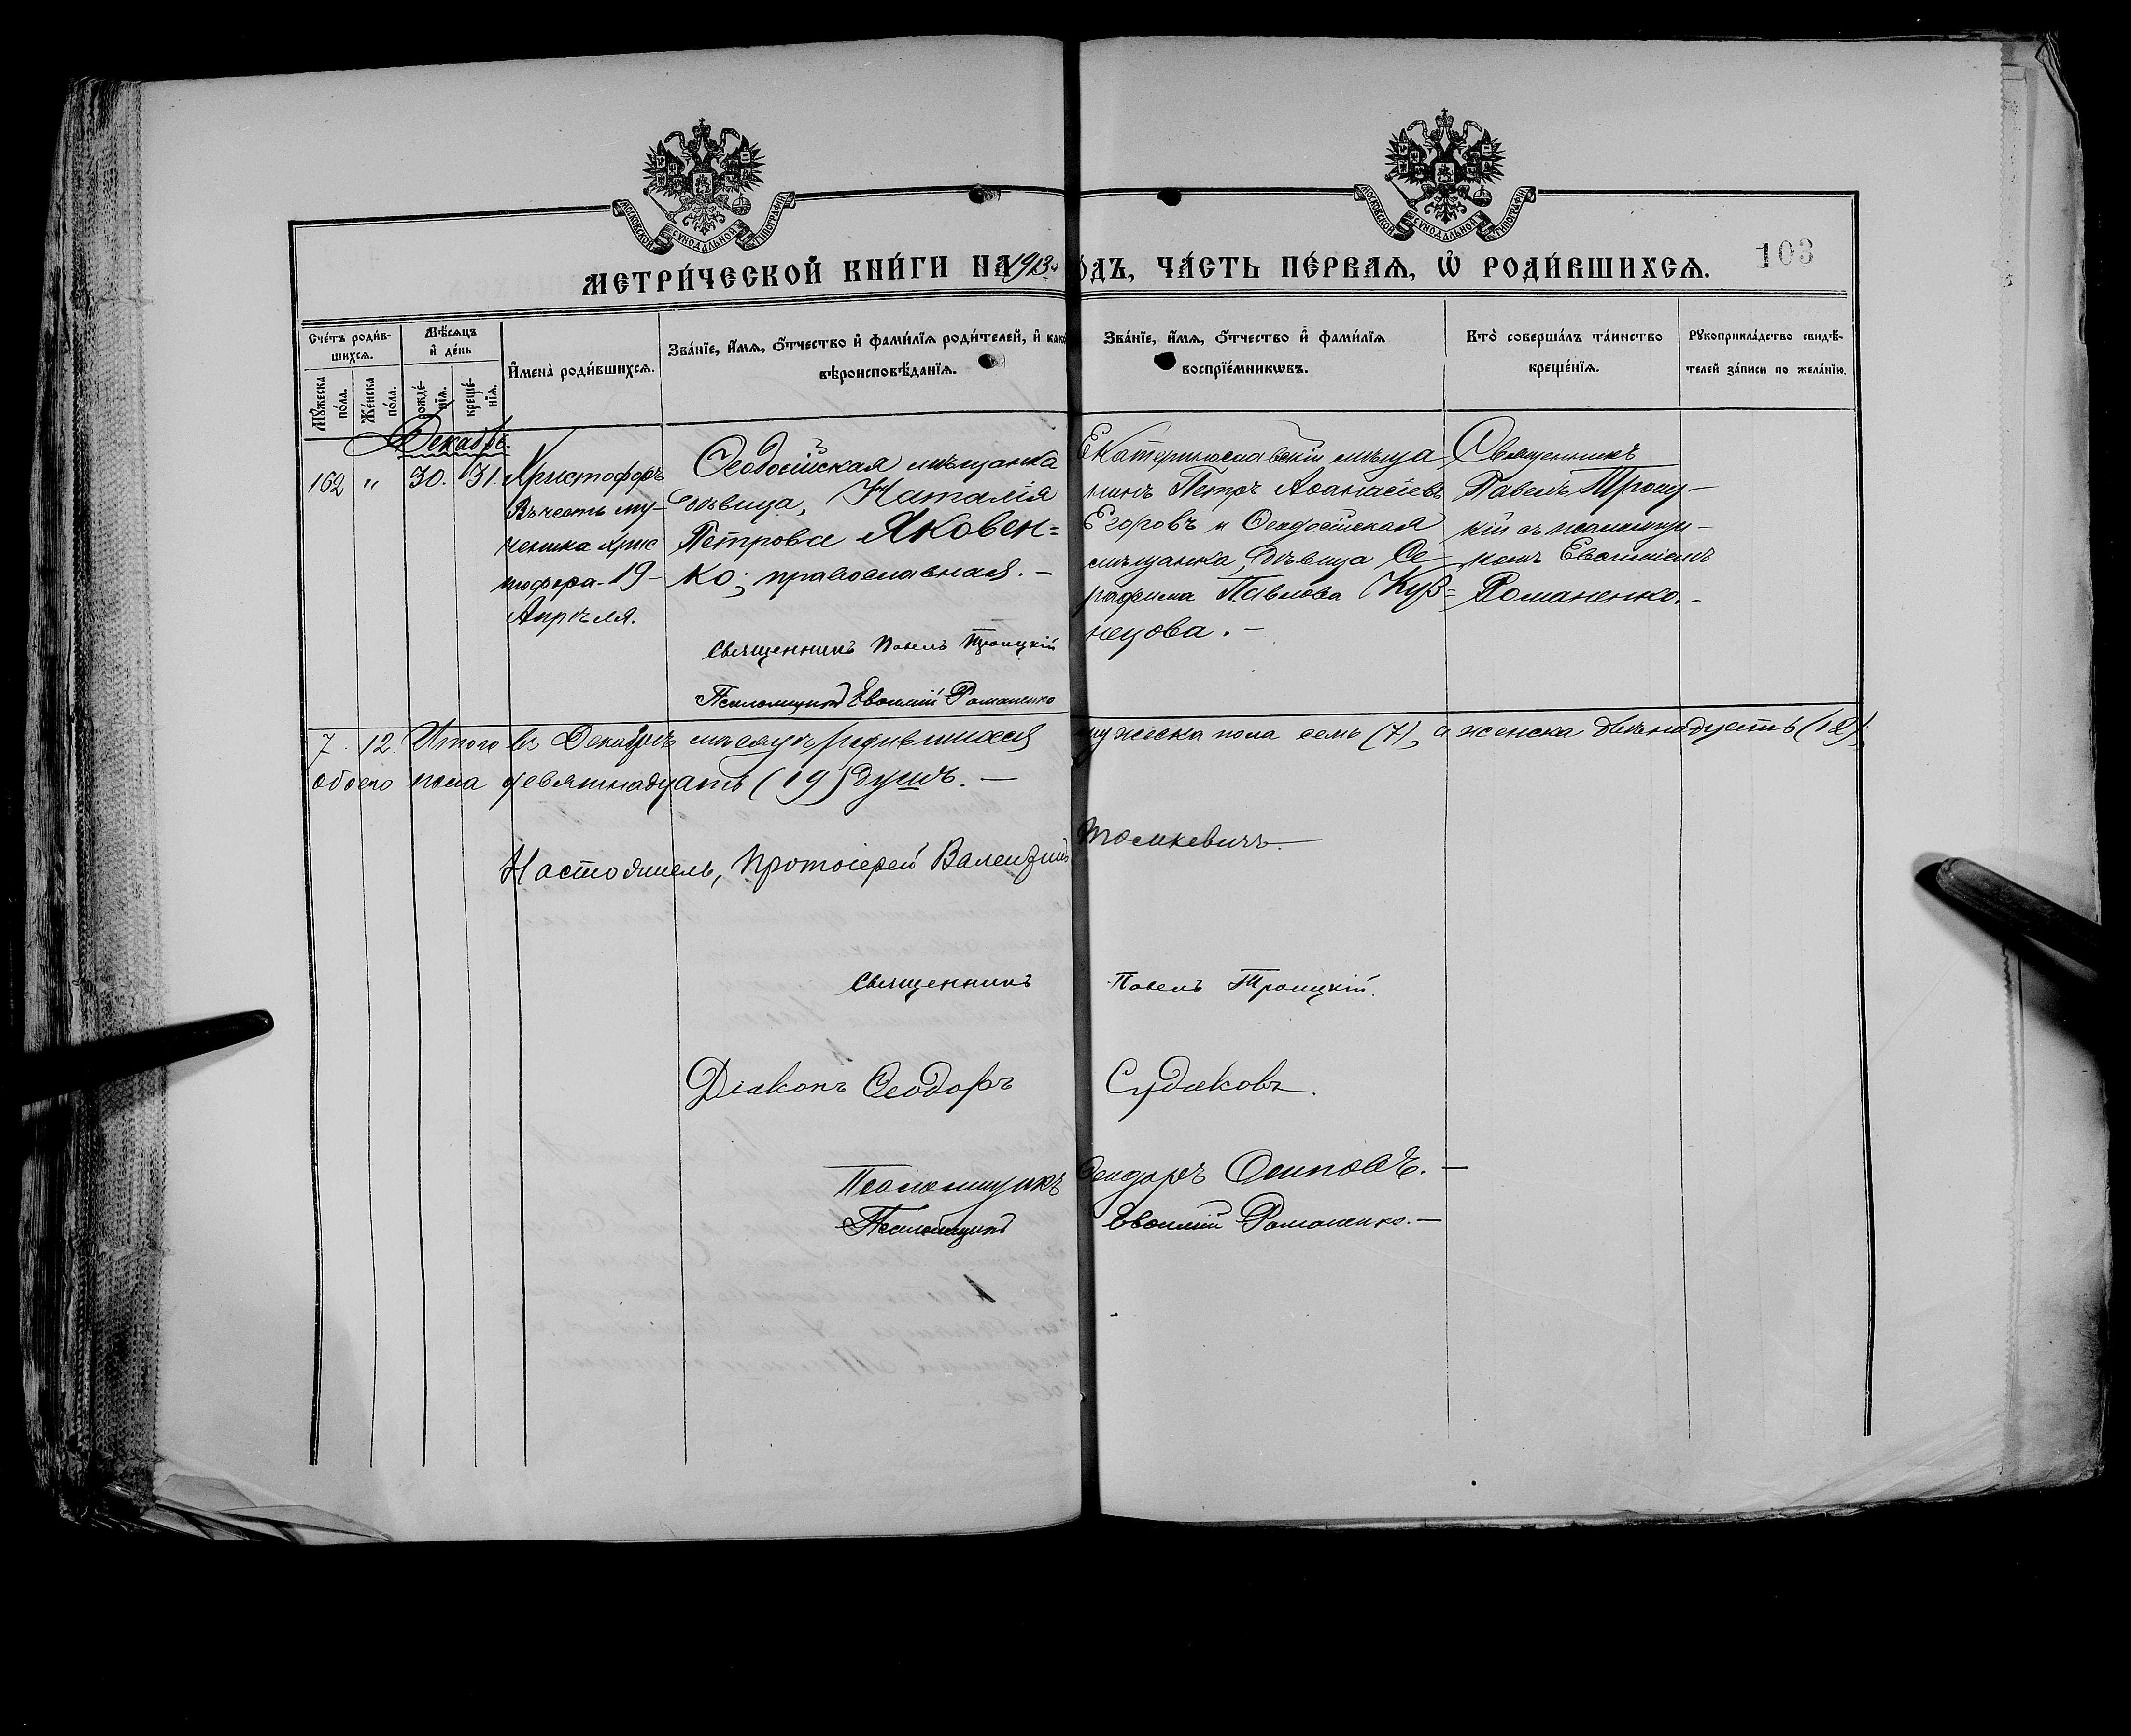 МОСКОВСКОЙ СѴНОДАЛЬНОЙ ТИПОГРАФІИ
МОСКОВСКОЙ СѴНОДАЛЬНОЙ ТИПОГРАФІИ
МЕТРИ́ЧЕСКОЙ КНИ́ГИ НА 1913 ОДЪ, ЧА́СТЬ ПЕ́РВАѦ, Ѡ РОДИ́ВШИХСѦ.
103
Сче́тъ роди́в-
шихсѧ.
Мꙋ́жеска
по́ла.
Же́нска
по́ла.
Мѣ́сѧцъ
и҆ де́нь
рожде́-
нїѧ.
креще́-
нїѧ.
И҆мена̀ роди́вшихсѧ.
Зва́нїе, и҆́мѧ, ѻ҆́тчество и҆ фами́лїѧ роди́телей, и҆ како
вѣроисповѣ́данїѧ.
Зва́нїе, и҆́мѧ, ѻ҆́тчество и҆ фами́лїѧ
воспрїе́мникѡвъ.
Кто̀ соверша́лъ та́инство
креще́нїѧ.
Рꙋкоприкла́дство свидѣ́-
телей за́писи по жела́нїю.
Декабрь.
162 " 30. 31.
Христофоръ
Въ честь му-
ченика Хрис
тофора - 19 -
Апрѣля.
Ѳеодосійская мѣщанка
дѣвица, Наталія
Петрова Яковен=
ко; православная. -
Священникъ Павелъ Троицкій
Псаломщикъ Евѳимій Романенко
Екатеринославскій мѣща
нинъ Петръ Аѳанасіевъ
Егоровъ и Ѳеодосійская
мѣщанка, дѣвица Се-
рафима Павлова Куз=
нецова. -
Священникъ
Павелъ Троиц-
кій съ псаломщи-
комъ Евѳиміемъ
Романенко. -
7. 12. Итого въ Декабрѣ мѣсяцѣ родившихся мужеска пола семь (7), а женска двѣнадцать (12),
обоего пола девятнадцать (19) душъ. -
Настоятель, Протоіерей Валентинъ Томкевичъ.
Священникъ Павелъ Троицкій.
Діаконъ Ѳеодоръ Судаковъ.
Псаломщикъ Ѳеодоръ Осиповъ. -
Псаломщикъ Евѳимій Романенко. -